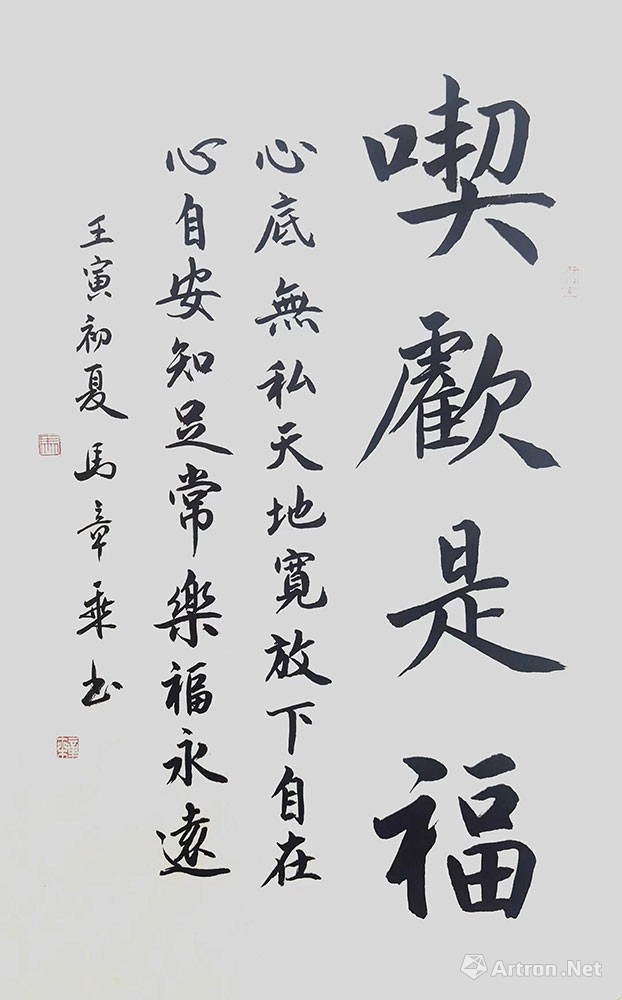 喫虧是福
心底無私天地寬放下自在
心自安知足常樂福永遠
壬寅初夏馬章乘书
Artron.Net